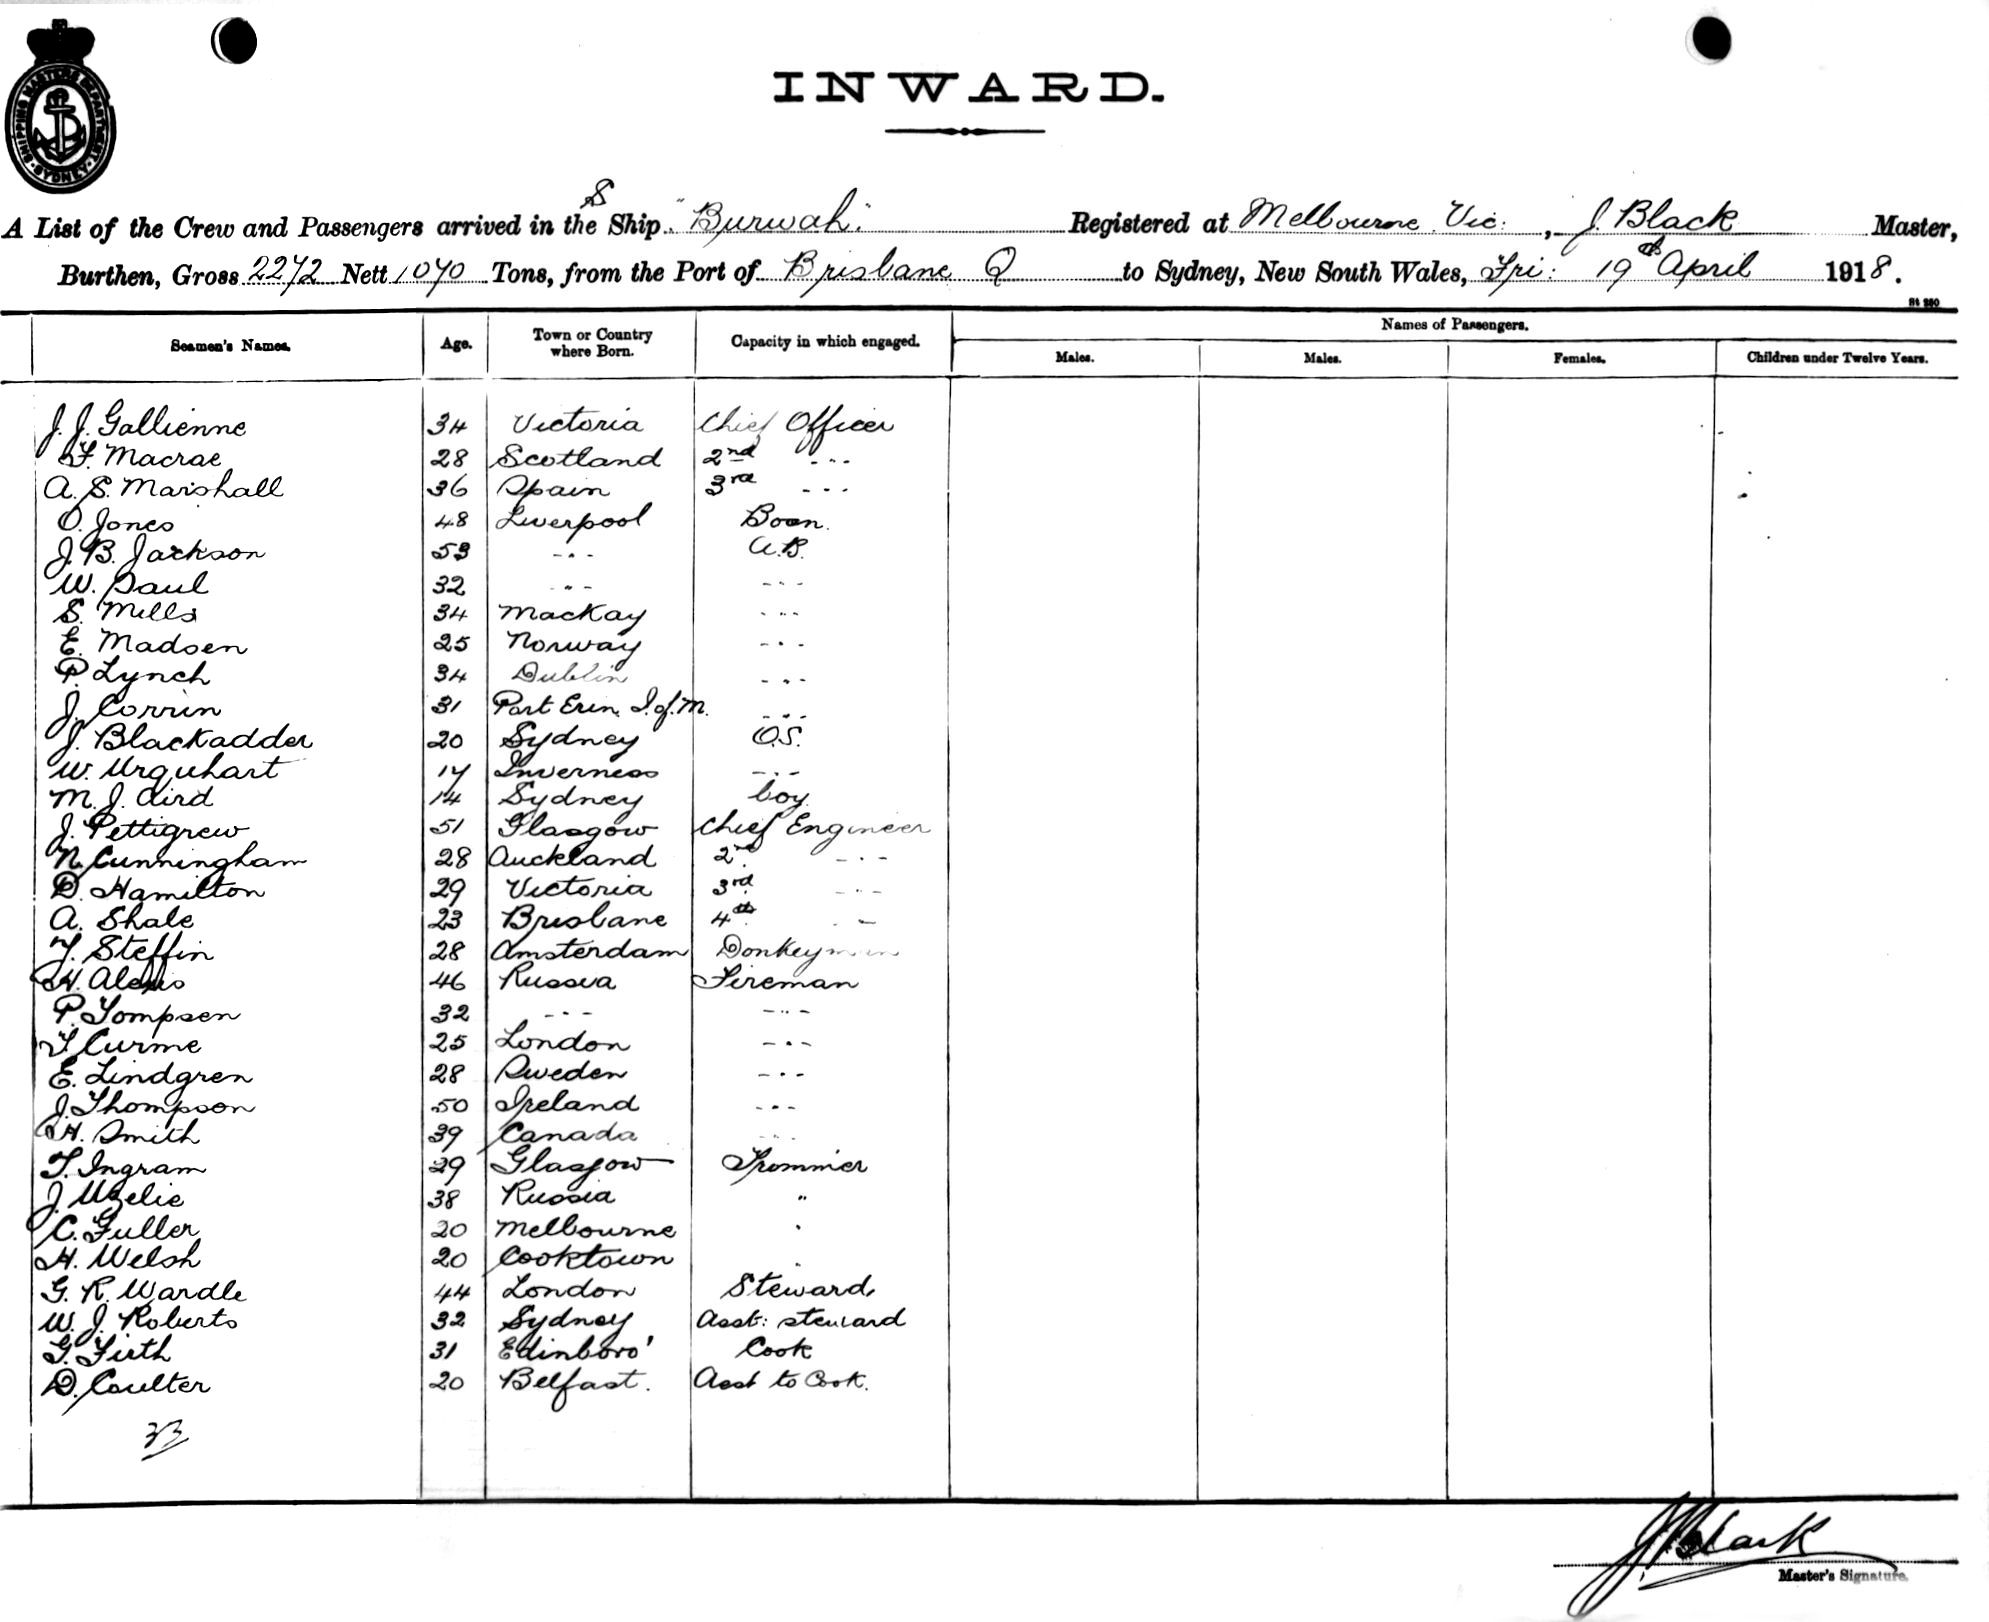 SHIPPING MASTERS DEPARTMENT
SYDNEY
INWARD.
A List of the Crew and Passengers arrived in the S Ship "Burwah" Registered at Melbourne Vic: , J. Black Master,
Burthen, Gross 2272 Nett 1070 Tons, from the Port of Brisbane Q to Sydney, New South Wales, Fri: 19th April 1918.
St 280
Seamen's Names. Age. Town or Country where Born. Capacity in which engaged. Names of Passengers.
Males. Males. Females. Children under Twelve Years.
J. J. Gallienne 34 Victoria Chief Officer
F. Macrae 28 Scotland 2nd -"-
A. S. Marshall 36 Spain 3rd -"-
O. Jones 48 Liverpool Bosn.
J. B. Jackson 53 -"- A.B.
W. Paul 32 -"- -"-
S. Mills 34 Mackay -"-
E. Madsen 25 Norway -"-
P. Lynch 34 Dublin -"-
J. Corrin 31 Port Erin I. of. M. -"-
J. Blackadder 20 Sydney O.S.
W. Urquhart 17 Inverness -"-
M. J. Aird 14 Sydney boy.
J. Pettigrew 51 Glasgow Chief Engineer
N. Cunningham 28 Auckland 2nd -"-
D. Hamilton 29 Victoria 3rd -"-
A. Shale 23 Brisbane 4th "-
T. Steffin 28 Amsterdam Donkeyman
H. 46 Russia Fireman
P. Tompsen 32 -"- -"-
F. Curme 25 London -"-
E. Lindgren 28 Sweden -"-
J. Thompson 50 Ireland -"-
H. Smith 39 Canada -"-
T. Ingram 29 Glasgow Trimmer
J. 38 Russia "
C. Fuller 20 Melbourne "
H. Welsh 20 Cooktown "
G. R. Wardle 44 London Steward,
W. J. Roberts 32 Sydney Asst: steward
G. Firth 31 Edinboro' Cook
D. Coulter 20 Belfast. Asst to Cook.
33
J Black
Master's Signature.